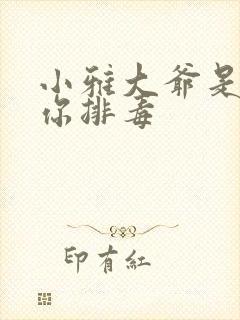 小雅大爷是
你排毒
印有红